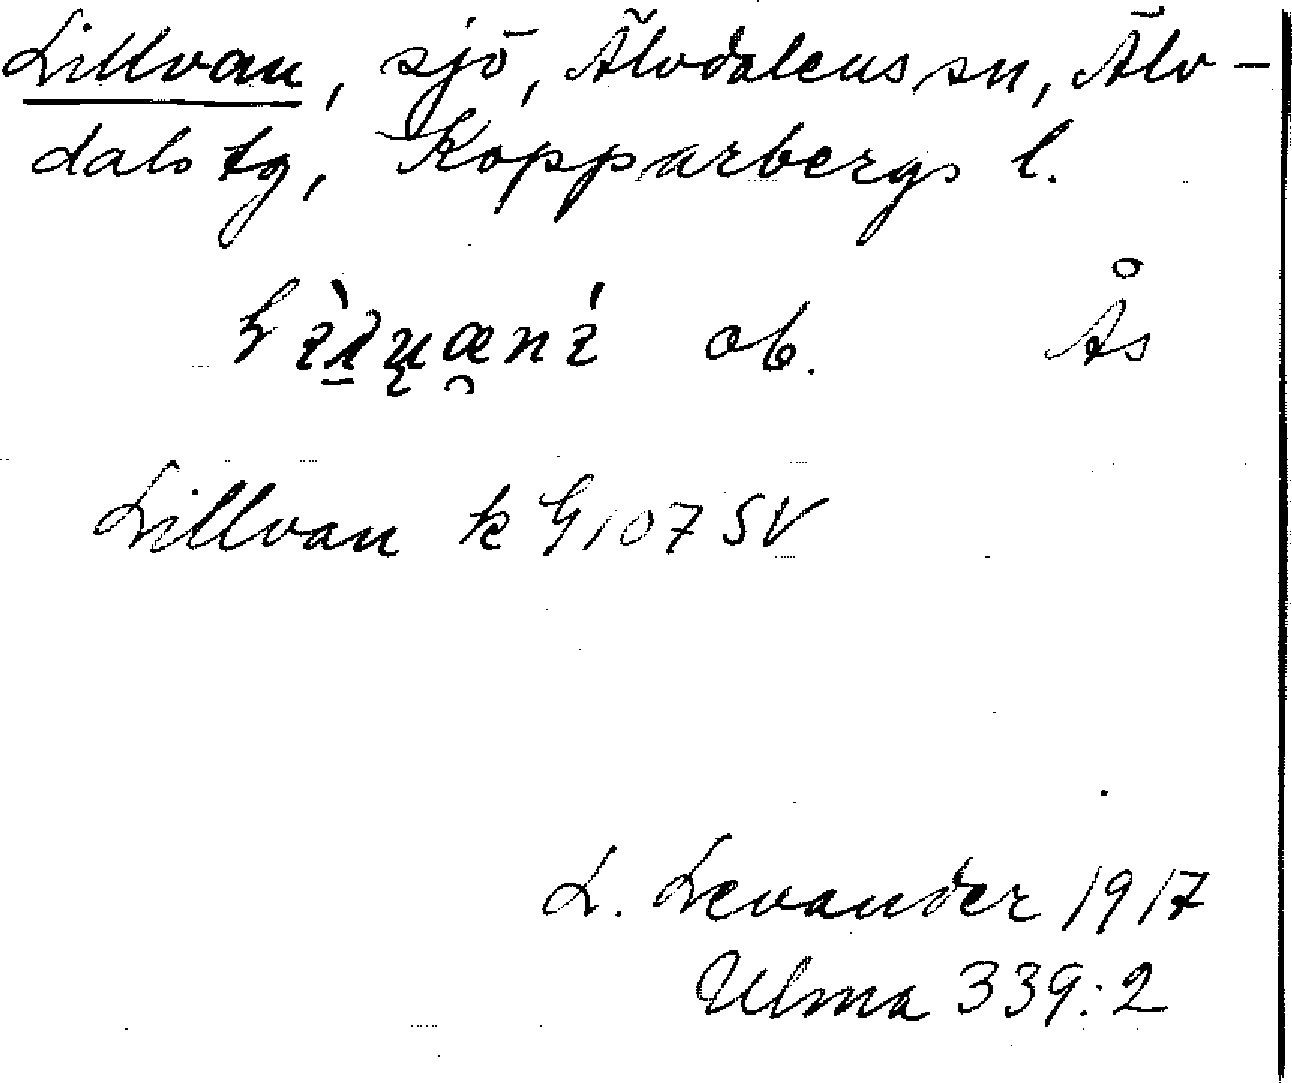 Lillvan, sjö, Älvdalens sn, Älv-
dals tg, Kopparbergs l.
ob. Ås
Lillvan k G 107 SV
L. Levander 1917
Ulma 339:2